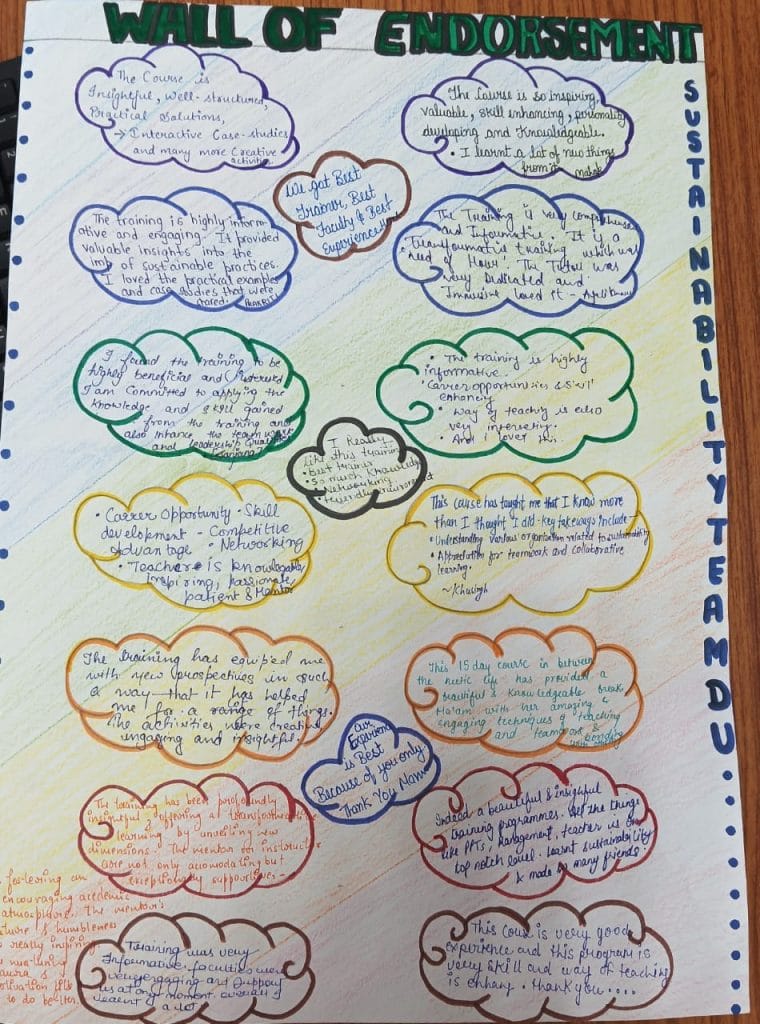 WALL OF ENDORSEMENT
SUSTAINABILITY TEAM DU.
The Course is
Insightful, Well-structured,
Practical Solutions,
→ Interactive Case-studies
and many more Creative
activities.
The Course is so inspiring,
valuable, skill enhancing, personality
developing and Knowledgeable.
• I learnt a lot of new things
from it
We got Best
Trainer, Best
Faculty & Best
Experience
The training is highly inform-
ative and engaging. It provided
valuable insights into the
of sustainable practices.
I loved the practical examples
and case studies that were
shared.
The Training is very
and Informative. It is a
training which was
need of Hour'. The Tutor was
very Dedicated and
loved it -
I found the training to be
highly beneficial and
I am committed to applying the
Knowledge and skill gained
from the training and
also enhance the teamwork
and leadership
• The training is highly
informative.
'Carrer opportunities & skill'
enhancing
• Way of teaching is also
very interesting.
• And I lover this.
I Really
like this training
• Best trainer
• So much Knowledge
• Networking
• friendly environment
• Carrer Opportunity - Skill
development - Competitive
Advantage • Networking
• Teacher is knowlegable,
inspiring, passionate,
patient & Mentor
This course has taught me that I know more
than I thought I did - key takeaways include -
• Understanding various organisation related to sustainability
• Appreciation for teamwork and collaborative
learning.
~
The training has equiped me
with new perspectives in such
a way that it has helped
me for a range of things.
The activities were creative,
engaging and insightful.
This 15 day course in between
the hectic life has provided a
beautiful & knowledgeable break
Ma'am with her amazing &
engaging techniques of teaching
and teamwork &
bonding
with
Our
Experience
is Best
Because of you only
Thank You
The training has been profoundly
insightful, offering a transformative
learning by unveiling new
dimensions. The mentor
are not only accomodating but
exceptionally supportive -
fostering an
encouraging academic
atmosphere. The mentor's
nature & humbleness
really inspiring
nurturing
&
motivation
to do better.
Indeed a beautiful & insightful
training programmes. All the things
like PPTs, Management, teacher is on
top notch level. Learnt sustainability
& made so many friends.
Training was very
Informative. faculties were
very engaging and support
us at any moment overall I
learnt a lot
This course is very good
experience and this program is
very skill and way of teaching
is enhany. thank you....